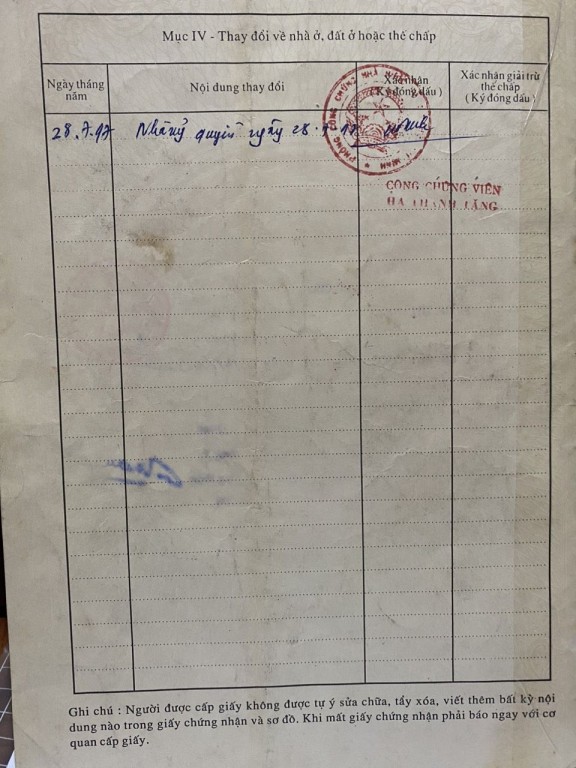 Mục IV - Thay đổi về nhà ở, đất ở hoặc thế chấp
Ngày tháng năm
Nội dung thay đổi
Xác nhận
( Ký đóng dấu )
Xác nhận giải trừ
thế chấp
( Ký đóng dấu )
28.7.97 quyền ngày 28.
PHÒNG CÔNG CHỨNG NHÀ NƯỚC
MINH
CÔNG CHỨNG VIÊN
HÀ THANH TĂNG
Ghi chú : Người được cấp giấy không được tự ý sửa chữa, tẩy xóa, viết thêm bất kỳ nội
dung nào trong giấy chứng nhận và sơ đồ. Khi mất giấy chứng nhận phải báo ngay với cơ
quan cấp giấy.